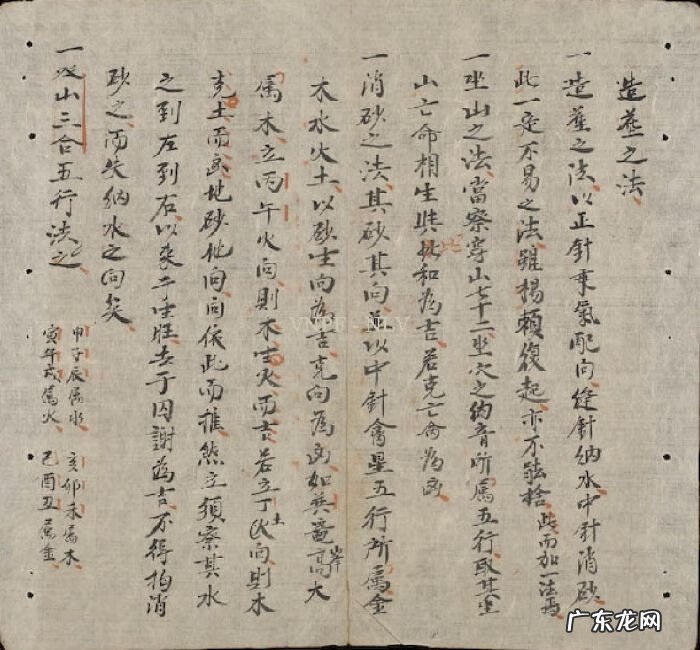 造莖之法
一造莖之法以正針乘氣配向縫針納水中針消砂
此一定不易之法雖楊賴復起亦不能捨此而加一法焉
一坐山之法當察穿山七十二坐穴之納音所屬五行取其坐
山亡命相生與比和為吉若克亡命為凶
一消砂之法其砂其向並以中針禽星五行所屬金
木水火土以砂生向為吉克向為凶如艮峯高大
屬木立丙午火向則木生火而吉若立丁土向則木
克土而凶也砂他向向依此而推然立須察其水
之到左到右以來于生旺去于囚謝為吉不得拘消
砂之而失納水之向矣
一坐山三合五行法之
申子辰屬水
寅午戌屬火
亥卯未屬木
巳酉丑屬金
VNPF NLV
广东龙网